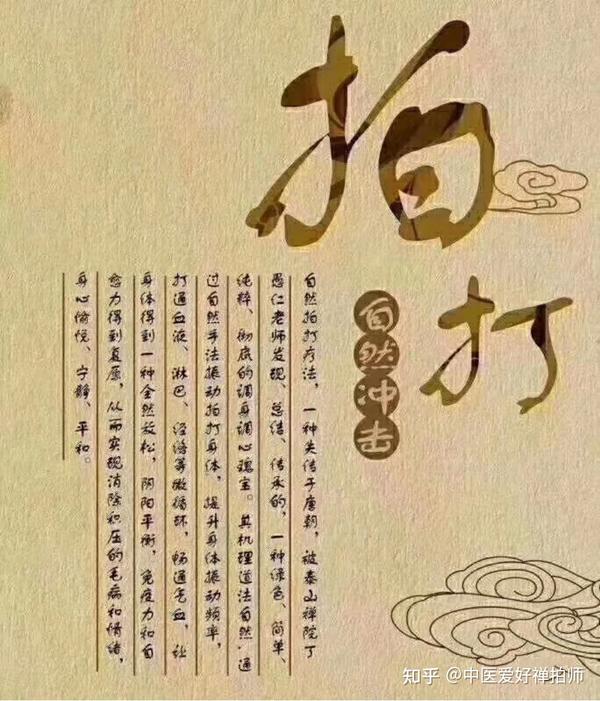 拍打
自然冲击
自然拍打疗法，一种失传于唐朝，被泰山禅院丁
愚仁老师发现、总结、传承的，一种绿色、简单、
纯粹、彻底的调身调心瑰宝。其机理道法自然，通
过自然手法振动拍打身体，提升身体振动频率，
打通血液、淋巴、经络等微循环，畅通气血，让
身体得到一种全然放松，阴阳平衡，免疫力和自
愈力得到复原，从而实现消除积压的毛病和情绪，
身心愉悦、宁静、平和。
知乎 @中医爱好禅拍师